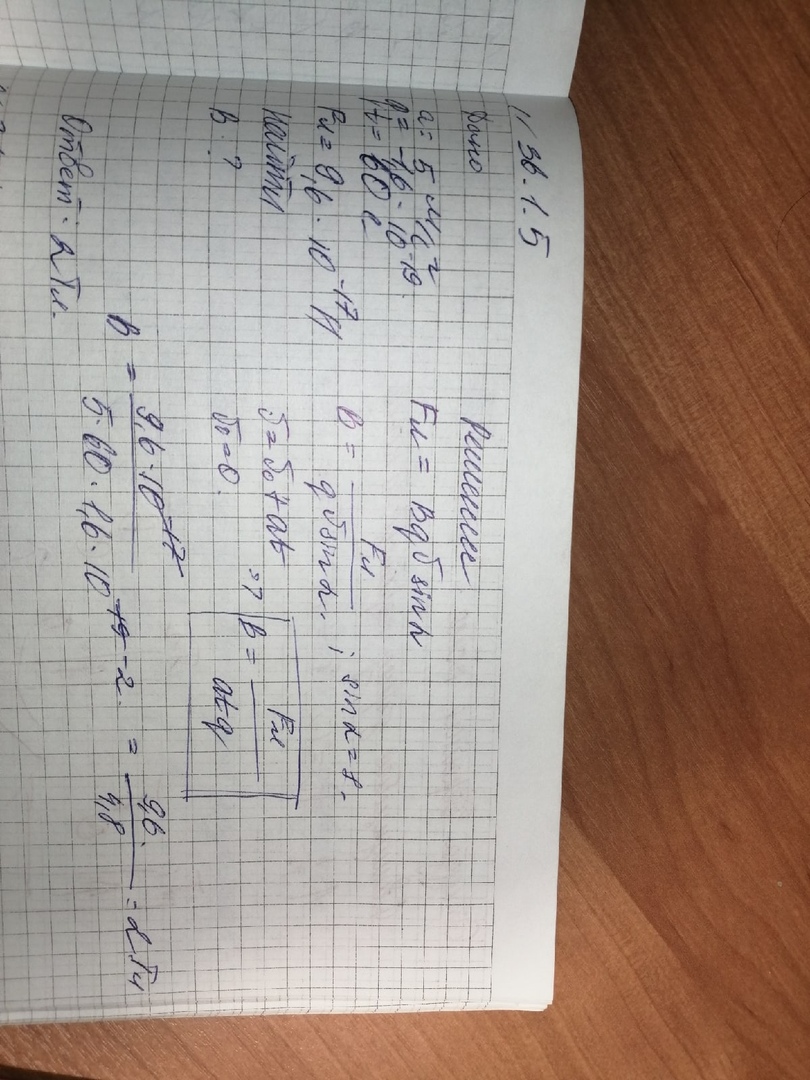 36.1.5
Дано
Решение
a = 5 м/с²
q = -1,6 · 10⁻¹⁹
t = 60 с
Fл = 9,6 · 10⁻¹⁷ Н
Найти
B - ?
Fл = Bqυ sin α
B = Fл / qυ sin α. ; sin α = 1.
υ = υ₀ + at
υ₀ = 0.
=> B = Fл / atq
B = 9,6 · 10⁻¹⁷ / 5 · 60 · 1,6 · 10⁻¹⁹ ⁻² = 9,6 / 4,8 = 2 Тл
Ответ: 2 Тл.